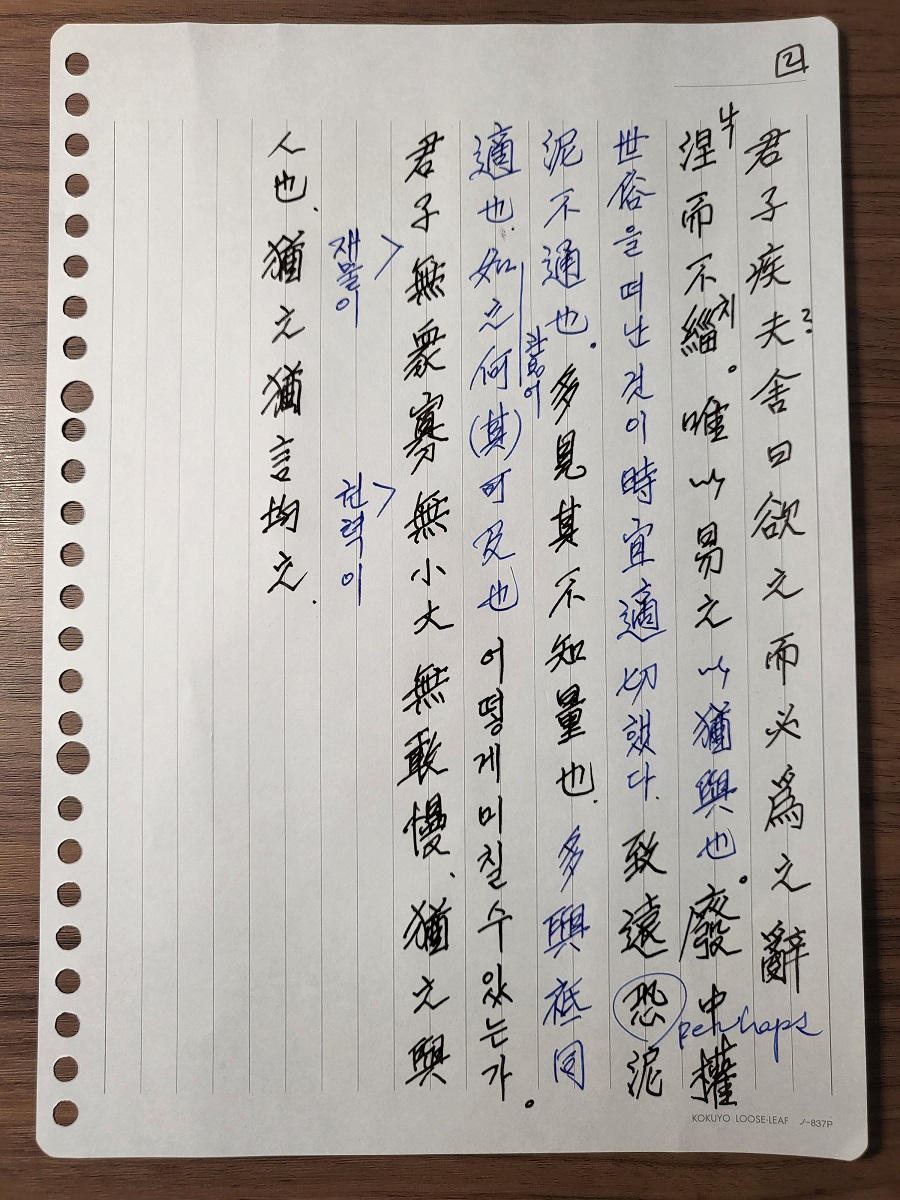 2
君子疾夫舍曰欲之而必爲之辭
?
涅而不緇。唯以易之以猶與也。廢中權
날
치
perhaps
世俗을 떠난 것이 時宜適切했다. 致遠恐泥
泥不通也。多見其不知量也. 多與祗同
適也. 如之何(其)可及也 어떻게 미칠 수 있는가。
관용어
君子無衆寡無小大無敢慢、猶之與
재물이
권력이
人也、猶之猶言均之.
KOKUYO LOOSE-LEAF ノ-837P